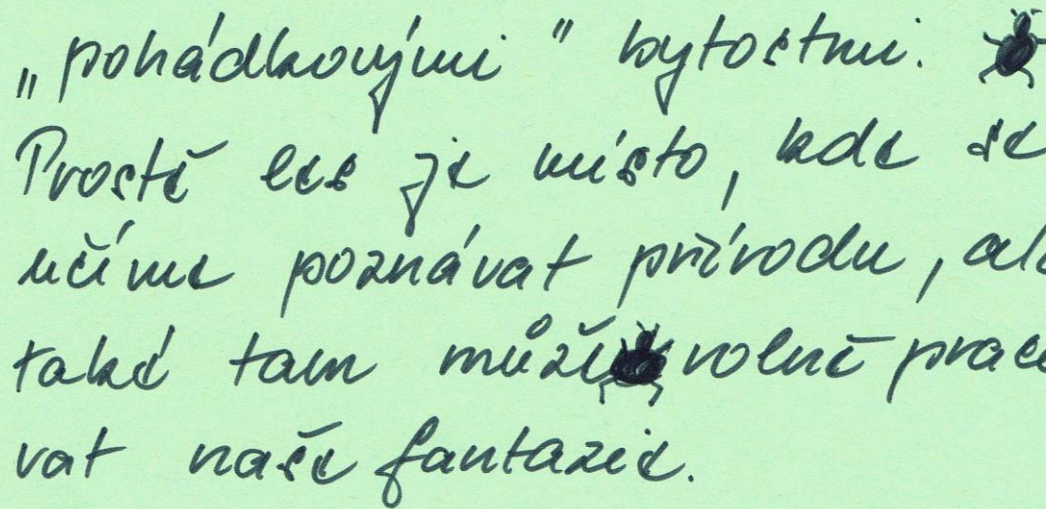 „pohádkovými" bytostmi.
Prostě les je místo, kde se
učíme poznávat přírodu, ale
také tam může volně praco
vat naše fantazie.